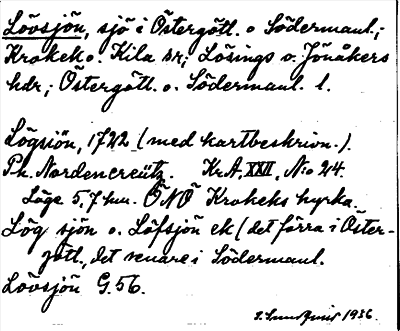 Lövsjön, sjö i Östergötl. o Södermanl.;
Krokek o. Kila sr; Lösings o. Jönåkers
hdr; Östergötl. o. Södermanl. l.
Lögsiön, 1722 (med kartbeskrivn.).
Ph. Nordencreütz. Kr.A. XXII, N:o 24.
Läge 5,7 km. ÖNÖ Krokeks kyrka.
Lög sjön o. Löfsjön ek (det förra i Öster-
götl., det senare i Södermanl.
Lövsjön G.56.
1936.